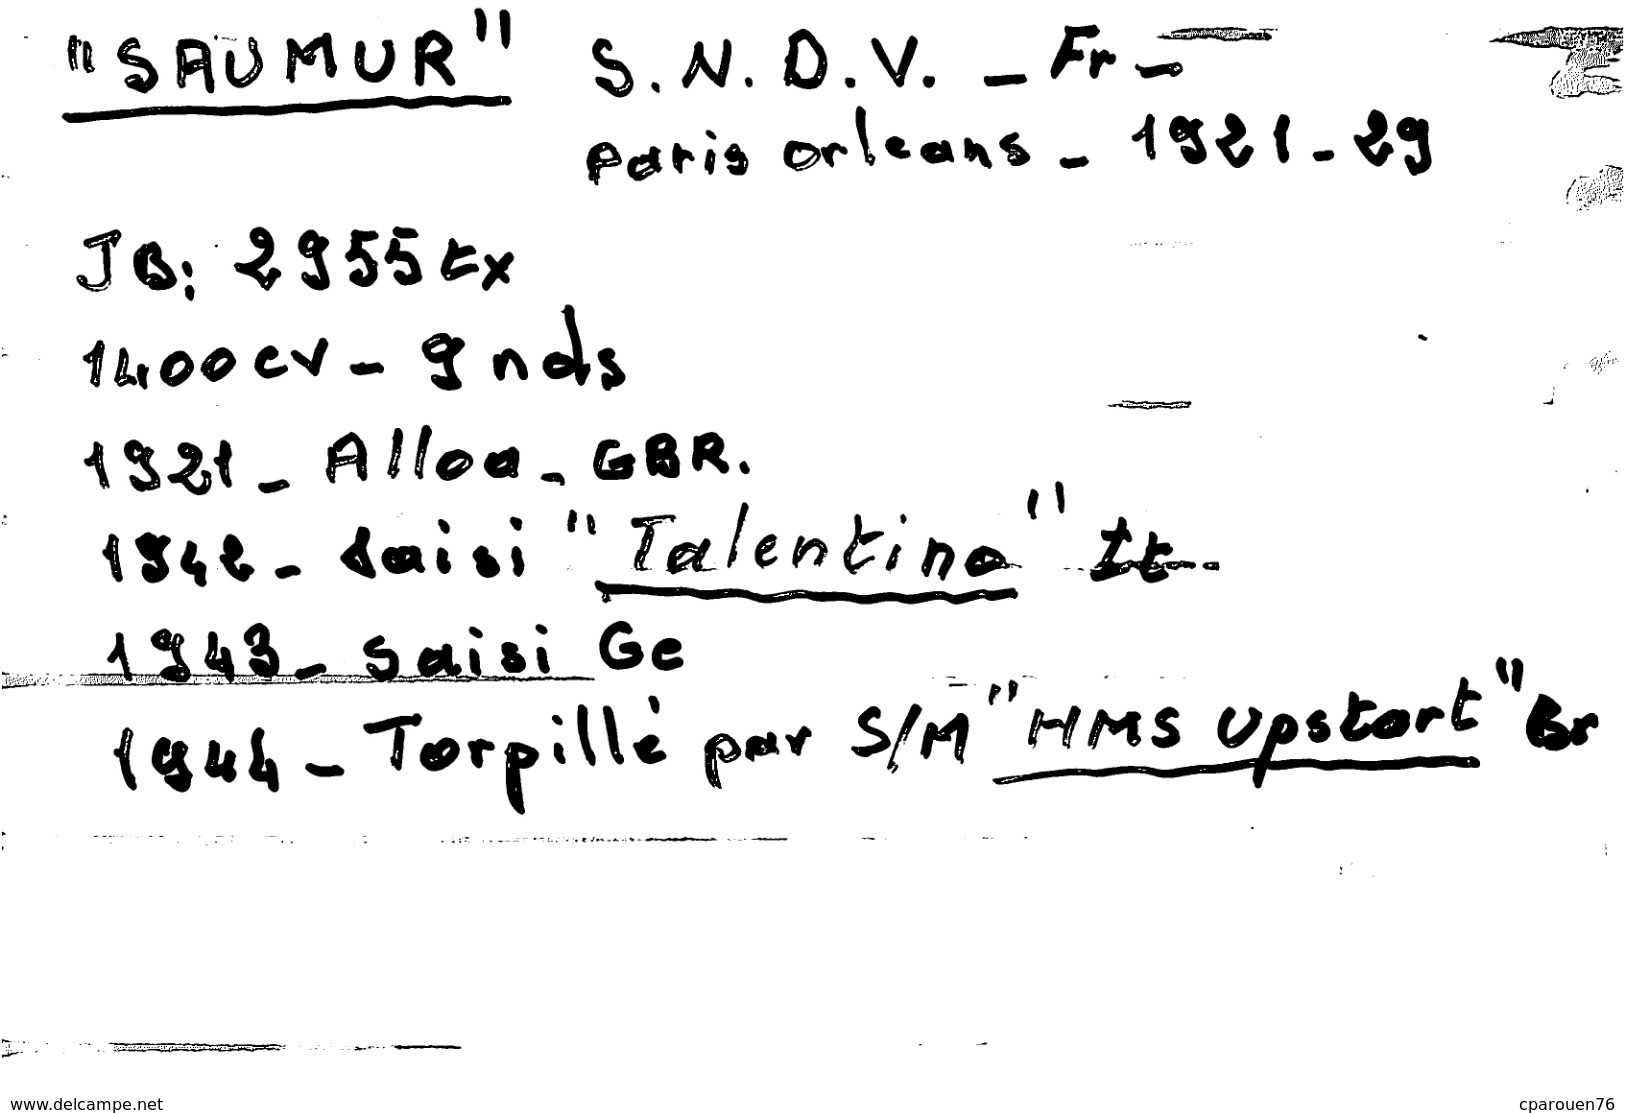 "SAUMUR" S.N.D.V. - Fr -
Paris Orleans - 1921-29
JB: 2955 tx
1400 cv - 9 nds
1921 - Alloa - GBR.
1942 - Saisi "Talentino" It -
1943 - Saisi Ge
1944 - Torpillé par S/M "HMS Upstart" Br
www.delcampe.net
cparouen76